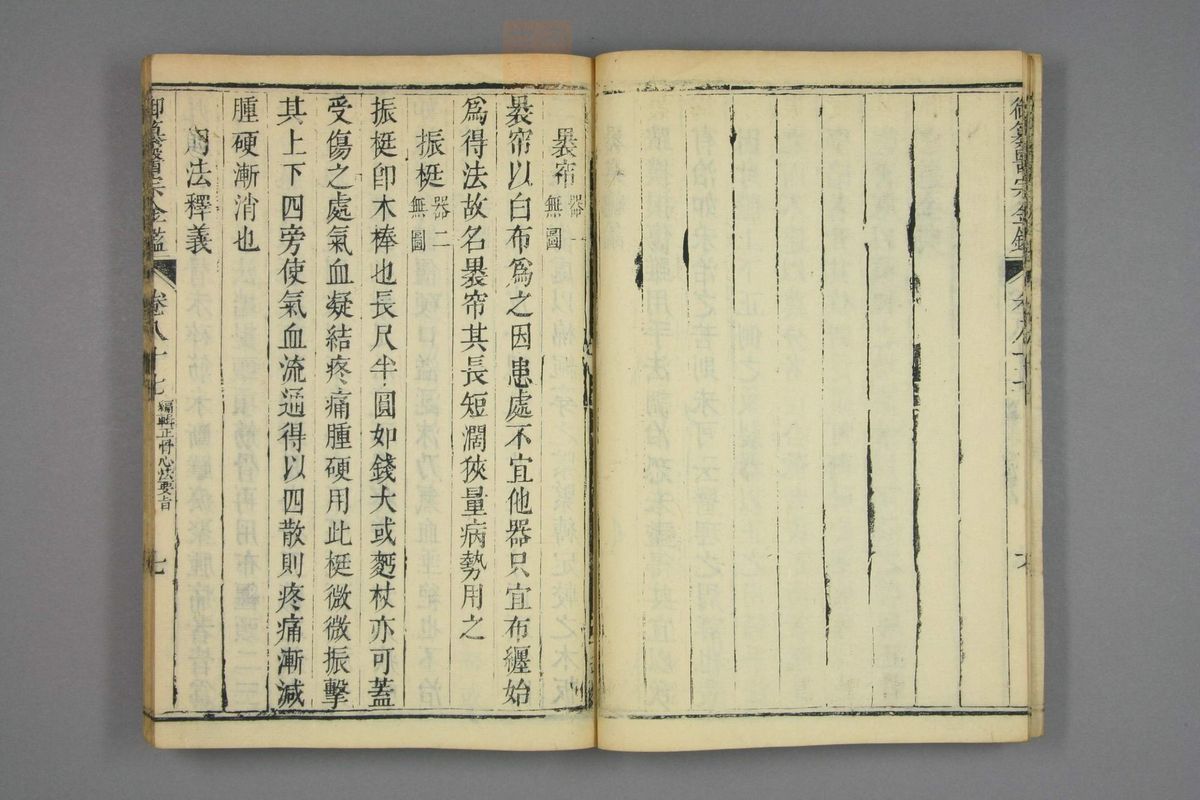 御纂醫宗金鑑
褁帘 器一無圖
褁帘以白布爲之因患處不宜他器只宜布纒始
爲得法故名褁帘其長短濶狹量病勢用之
振梃 器二無圖
振梃卽木棒也長尺半圓如錢大或麪杖亦可蓋
受傷之處氣血凝結疼痛腫硬用此梃微微振擊
其上下四旁使氣血流通得以四散則疼痛漸減
腫硬漸消也
法釋義
御纂醫宗金鑑 卷八十七 編輯正骨心法要旨 七